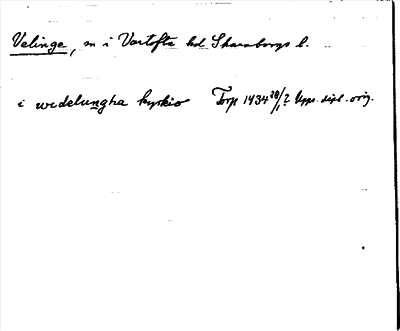 Velinge, sn i Vartofta hd Skaraborgs l.
i wedelungha kyrkio Torp 1434 28/1? Upps. dipl. orig.